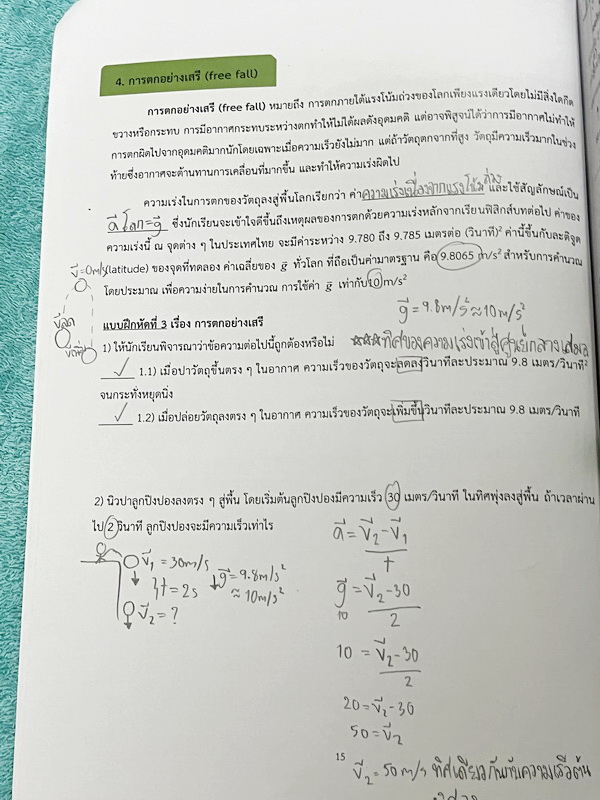 4. การตกอย่างเสรี (free fall)
การตกอย่างเสรี (free fall) หมายถึง การตกภายใต้แรงโน้มถ่วงของโลกเพียงแรงเดียวโดยไม่มีสิ่งใดกีด
ขวางหรือกระทบ การมีอากาศกระทบระหว่างตกทำให้ไม่ได้ผลดังอุดมคติ แต่อาจพิสูจน์ได้ว่าการมีอากาศไม่ทำให้
การตกผิดไปจากอุดมคติมากนักโดยเฉพาะเมื่อความเร็วยังไม่มาก แต่ถ้าวัตถุตกจากที่สูง วัตถุมีความเร็วมากในช่วง
ท้ายซึ่งอากาศจะต้านทานการเคลื่อนที่มากขึ้น และทำให้ความเร่งผิดไป
ความเร่งในการตกของวัตถุลงสู่พื้นโลกเรียกว่า ค่าความเร่งเนื่องจากแรงโน้มถ่วง และใช้สัญลักษณ์เป็น
a⃗ โลก = g⃗ ซึ่งนักเรียนจะเข้าใจดีขึ้นถึงเหตุผลของการตกด้วยความเร่งหลักจากเรียนฟิสิกส์บทต่อไป ค่าของ
ความเร่งนี้ ณ จุดต่าง ๆ ในประเทศไทย จะมีค่าระหว่าง 9.780 ถึง 9.785 เมตรต่อ (วินาที)² ค่านี้ขึ้นกับละติจูด
v⃗=0m/s
(latitude) ของจุดที่ทดลอง ค่าเฉลี่ยของ g⃗ ทั่วโลก ที่ถือเป็นค่ามาตรฐาน คือ 9.8065 m/s² สำหรับการคำนวณ
โดยประมาณ เพื่อความง่ายในการคำนวณ การใช้ค่า g⃗ เท่ากับ 10 m/s²
g⃗ = 9.8 m/s² ≈ 10 m/s²
แบบฝึกหัดที่ 3 เรื่อง การตกอย่างเสรี
1) ให้นักเรียนพิจารณาว่าข้อความต่อไปนี้ถูกต้องหรือไม่
☆☆☆ทิศของความเร่งเข้าสู่ศูนย์กลางเสมอ
✓ 1.1) เมื่อปาวัตถุขึ้นตรง ๆ ในอากาศ ความเร็วของวัตถุจะลดลงวินาทีละประมาณ 9.8 เมตร/วินาที²
จนกระทั่งหยุดนิ่ง
✓ 1.2) เมื่อปล่อยวัตถุลงตรง ๆ ในอากาศ ความเร็วของวัตถุจะเพิ่มขึ้นวินาทีละประมาณ 9.8 เมตร/วินาที
2) นิวปาลูกปิงปองลงตรง ๆ สู่พื้น โดยเริ่มต้นลูกปิงปองมีความเร็ว 30 เมตร/วินาที ในทิศพุ่งลงสู่พื้น ถ้าเวลาผ่าน
ไป 2 วินาที ลูกปิงปองจะมีความเร็วเท่าไร
v⃗₁ = 30 m/s
t = 2s
v⃗₂ = ?
g⃗ = 9.8 m/s²
≈ 10 m/s²
a⃗ = v⃗₂ - v⃗₁
t
g⃗ = v⃗₂ - 30
10
2
10 = v⃗₂ - 30
2
20 = v⃗₂ - 30
50 = v⃗₂
15
v⃗₂ = 50 m/s ทิศเดียวกันกับความเร็วต้น